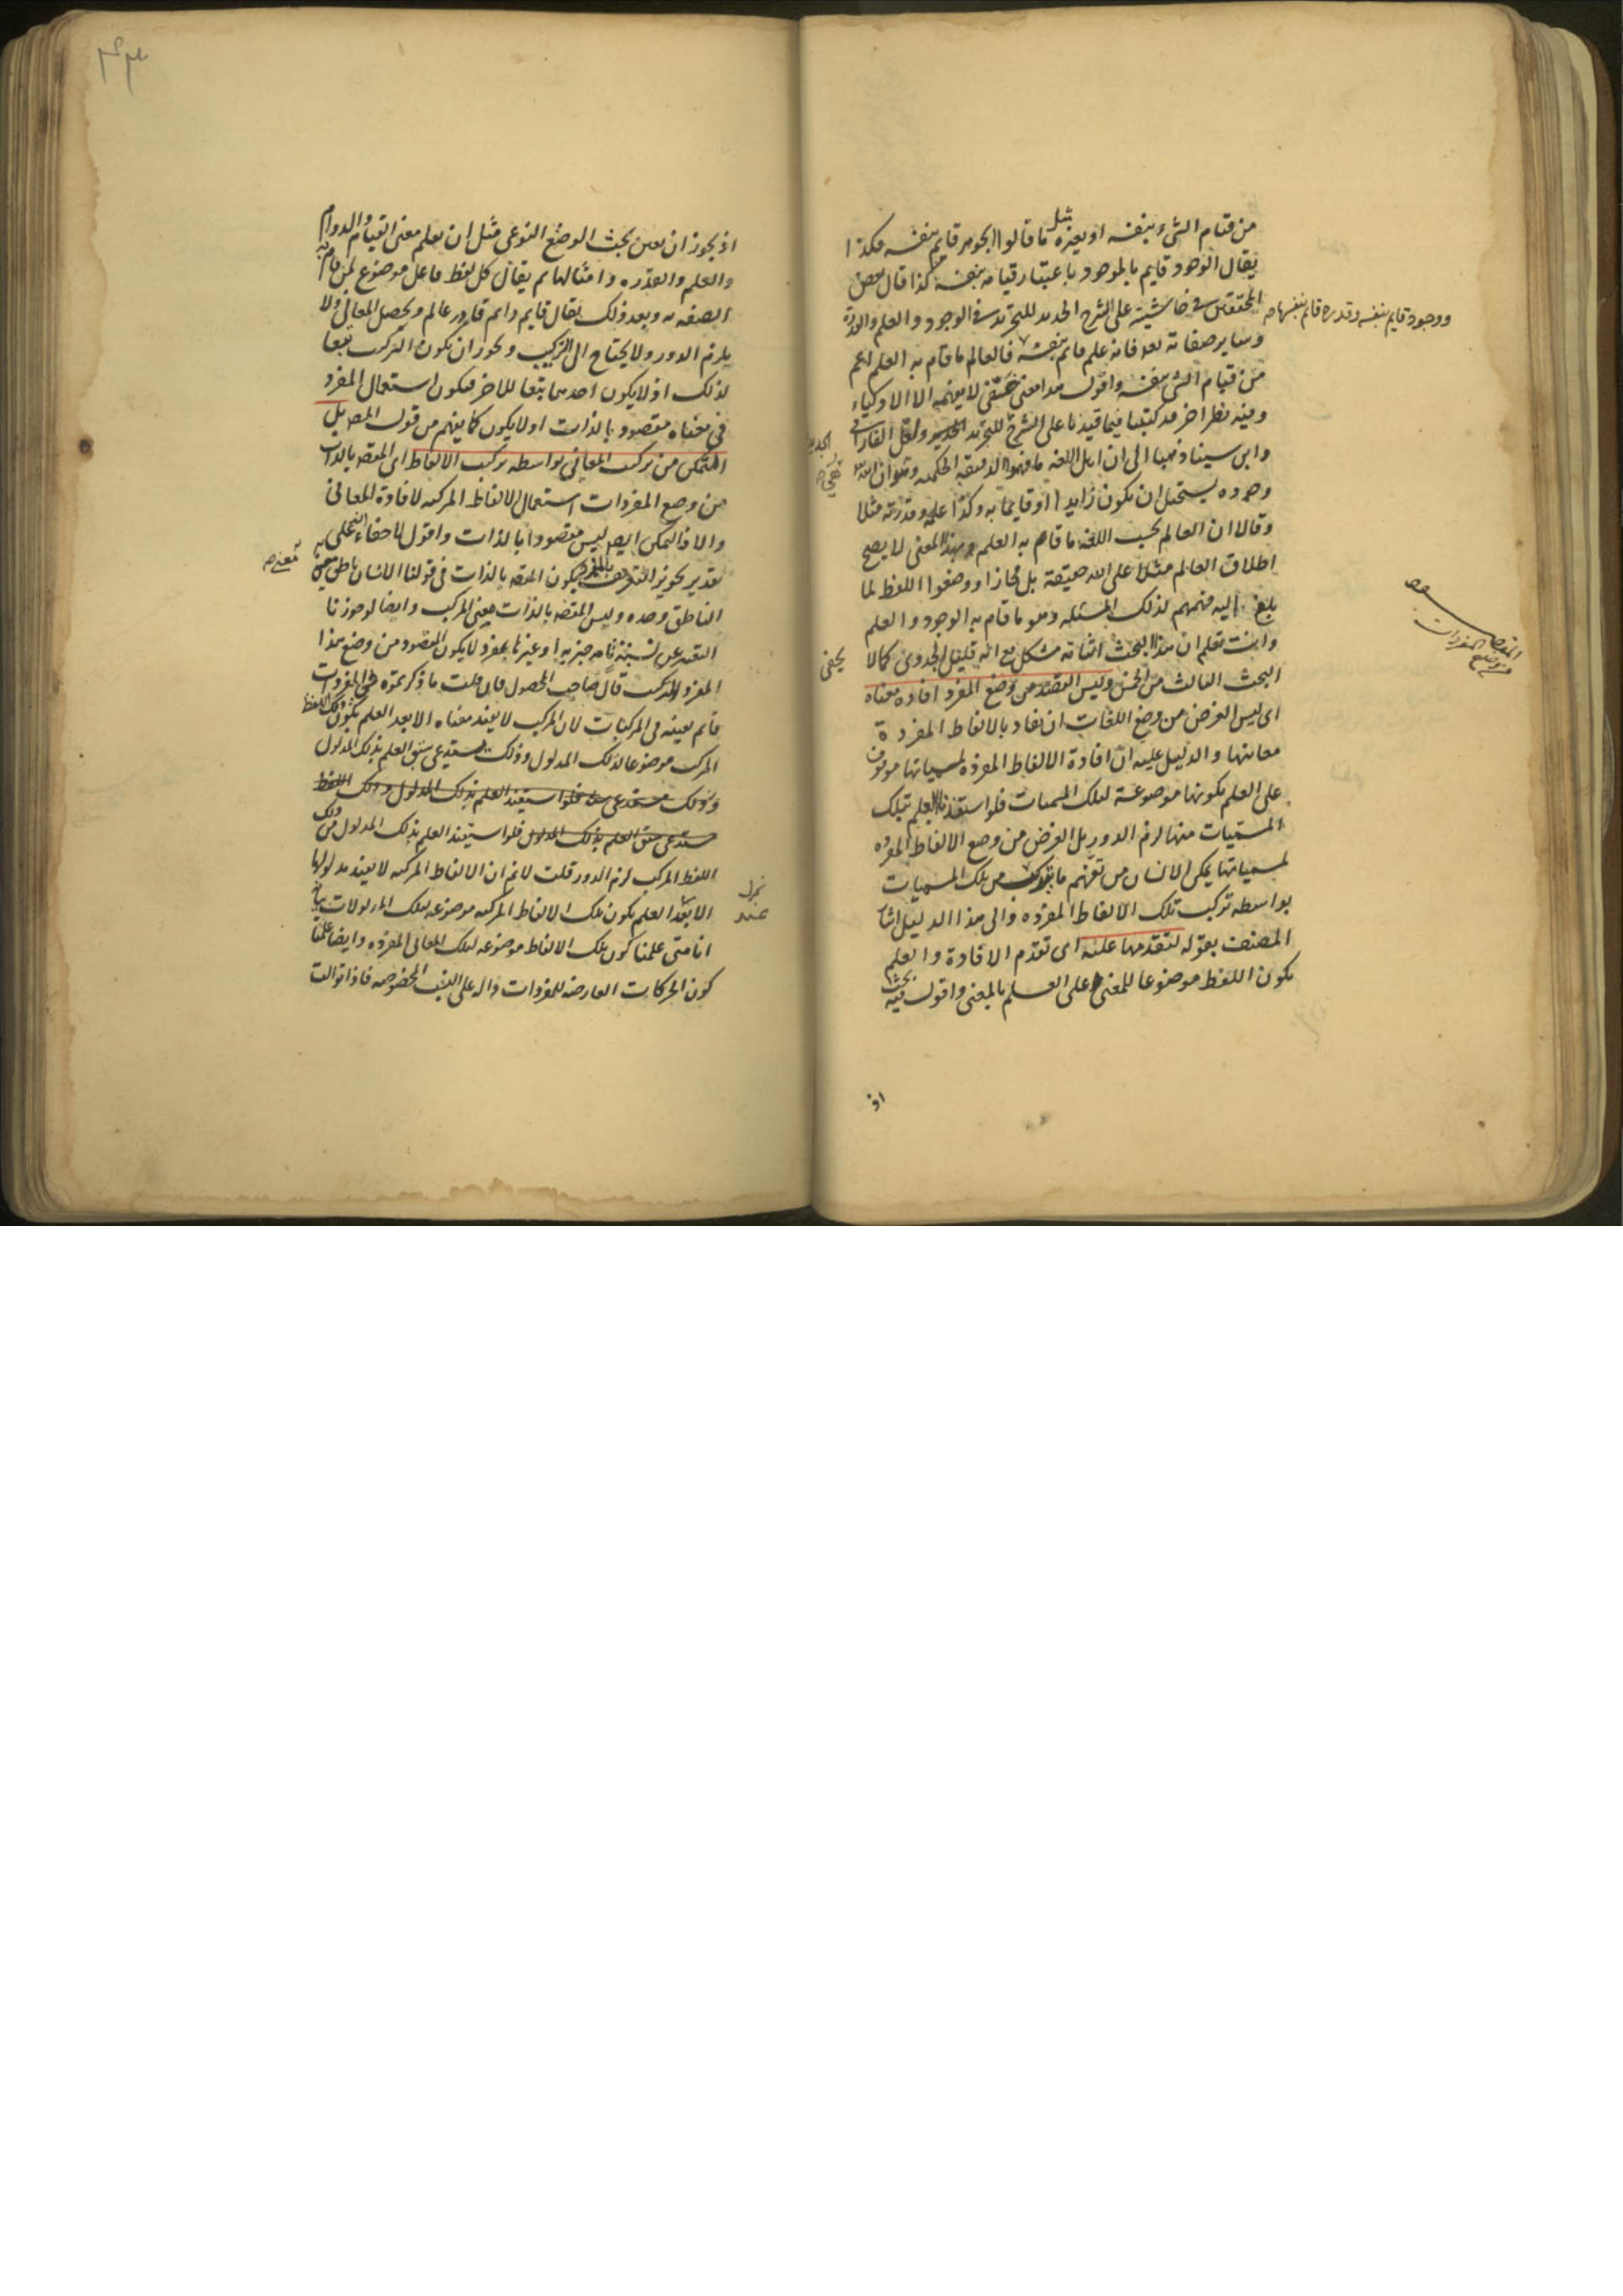 من قيام الشئ بنفسه او بغيره مثل ما قالوا الجوهر قايم بنفسه فكذا
يقال الوجود قايم بالموجود باعتبار قيامه بنفسه كذا قال بعض
المحققين في حاشيته على الشرح الجديد للتجريد في الوجود والعلم والقدرة
ووجود قايم بنفسه وقدرة قائم بنفسها صح
وساير صفاته فانه علم قائم بنفسه فالعالم ما قام به العلم اعم
من قيام الشئ بنفسه واقول هذا معنى حقيقى لا يفهمه الا الاذكياء
وفيه نظر اخر قد كتبنا فيما قيدنا على الشرح للتجريد ولعل الفارابى
الجديد
وابن سينا ذهبا الى ان اهل اللغه ما فهموا الدقيقه الحكميه وهو ان الله
وجوده يستحيل ان يكون زايدا او قايما به وكذا علمه وقدرته مثلا
وقالا ان العالم بحسب اللغة ما قام به العلم وبهذا المعنى لا يصح
اطلاق العالم مثلا على الله حقيقة بل مجازا ووضعوا اللفظ لما
بلغ اليه فهمهم لذلك المسئله وهو ما قام به الوجود والعلم
وانت تعلم ان هذا البحث اثباته مشكل مع انه قليل الجدوى كما لا
يخفى
البحث الثالث من وليس القصد من وضع المفرد افادة معناه
المقصد من وضع المفردات
اى ليس الغرض من وضع اللغات ان تفاد بالالفاظ المفردة
معانيها والدليل عليه ان افادة الالفاظ المفردة لمسمياتها موقوف
على العلم بكونها موضوعة لتلك المسميات فلو استفدنا العلم بتلك
المسميات منها لزم الدور بل الغرض من وضع الالفاظ المفرده
لمسمياتها يمكن الانسان من تفهم ما يتركب من تلك المسميات
بواسطه تركيب تلك الالفاظ المفرده والى هذا الدليل اشار
المصنف بقوله لتقدمها عليه اى تقدم الافادة والعلم
بكون اللفظ موضوعا للمعنى على العلم بالمعنى واقول فيه بحث
اذ
اذ يجوز ان يعين بحيث الوضع النوعى مثل ان يعلم معنى القيام والدوام
والعلم والقدره وامثالها ثم يقال كل لفظ فاعل موضوع لمن قام به
الصفه وبعد ذلك يقال قايم دايم قادر عالم ويحصل المعانى ولا
يلزم الدور ولا يحتاج الى التركيب ويجوز ان يكون التركيب تبعا
لذلك اذ لا يكون احدهما تبعا للاخر فيكون استعمال المفرد
فى معناه مقصودا بالذات او لا يكون كما يفهم من قول المص بل
التمكن من تركيب المعانى بواسطه تركيب الالفاظ اى المقصد بالذات
من وضع المفردات استعمال الالفاظ المركبه لافادة المعانى
والا فالتمكن ايضا ليس مقصودا بالذات واقول
تقدير تجويز التعريف بالمفرد فيكون المقصد بالذات فى قولنا الانسان ناطق معنى
الناطق وحده وليس المقصد بالذات معنى المركب وايضا لو جوزنا
التعبير عن نسبة تامه خبريه او غيرها بمفرد لا يكون المقصود من وضع هذا
المفرد المركب قال صاحب المحصول فان قلت ما ذكرتموه فى المفردات
قائم بعينه فى المركبات لان المركب لا يفيد معناه الا بعد العلم بكون ذلك اللفظ
المركب موضوعا لذلك المدلول وذلك يستدعى سبق العلم بذلك المدلول
وذلك يستدعى فلو استفيد العلم بذلك المدلول وذلك اللفظ
يستدعى سبق العلم بذلك المدلول فلو استفيد العلم بذلك المدلول من ذلك
اللفظ المركب لزم الدور قلت لا نم ان الالفاظ المركبه لا يفيد مدلولها
الا بعد العلم بكون تلك الالفاظ المركبه موضوعه لتلك المدلولات بيانه
عند
انا متى علمنا كون تلك الالفاظ موضوعه لتلك المعانى المفرده وايضا علمنا
كون الحركات العارضه للمفردات داله على النسب المخصوصه فاذا توالت